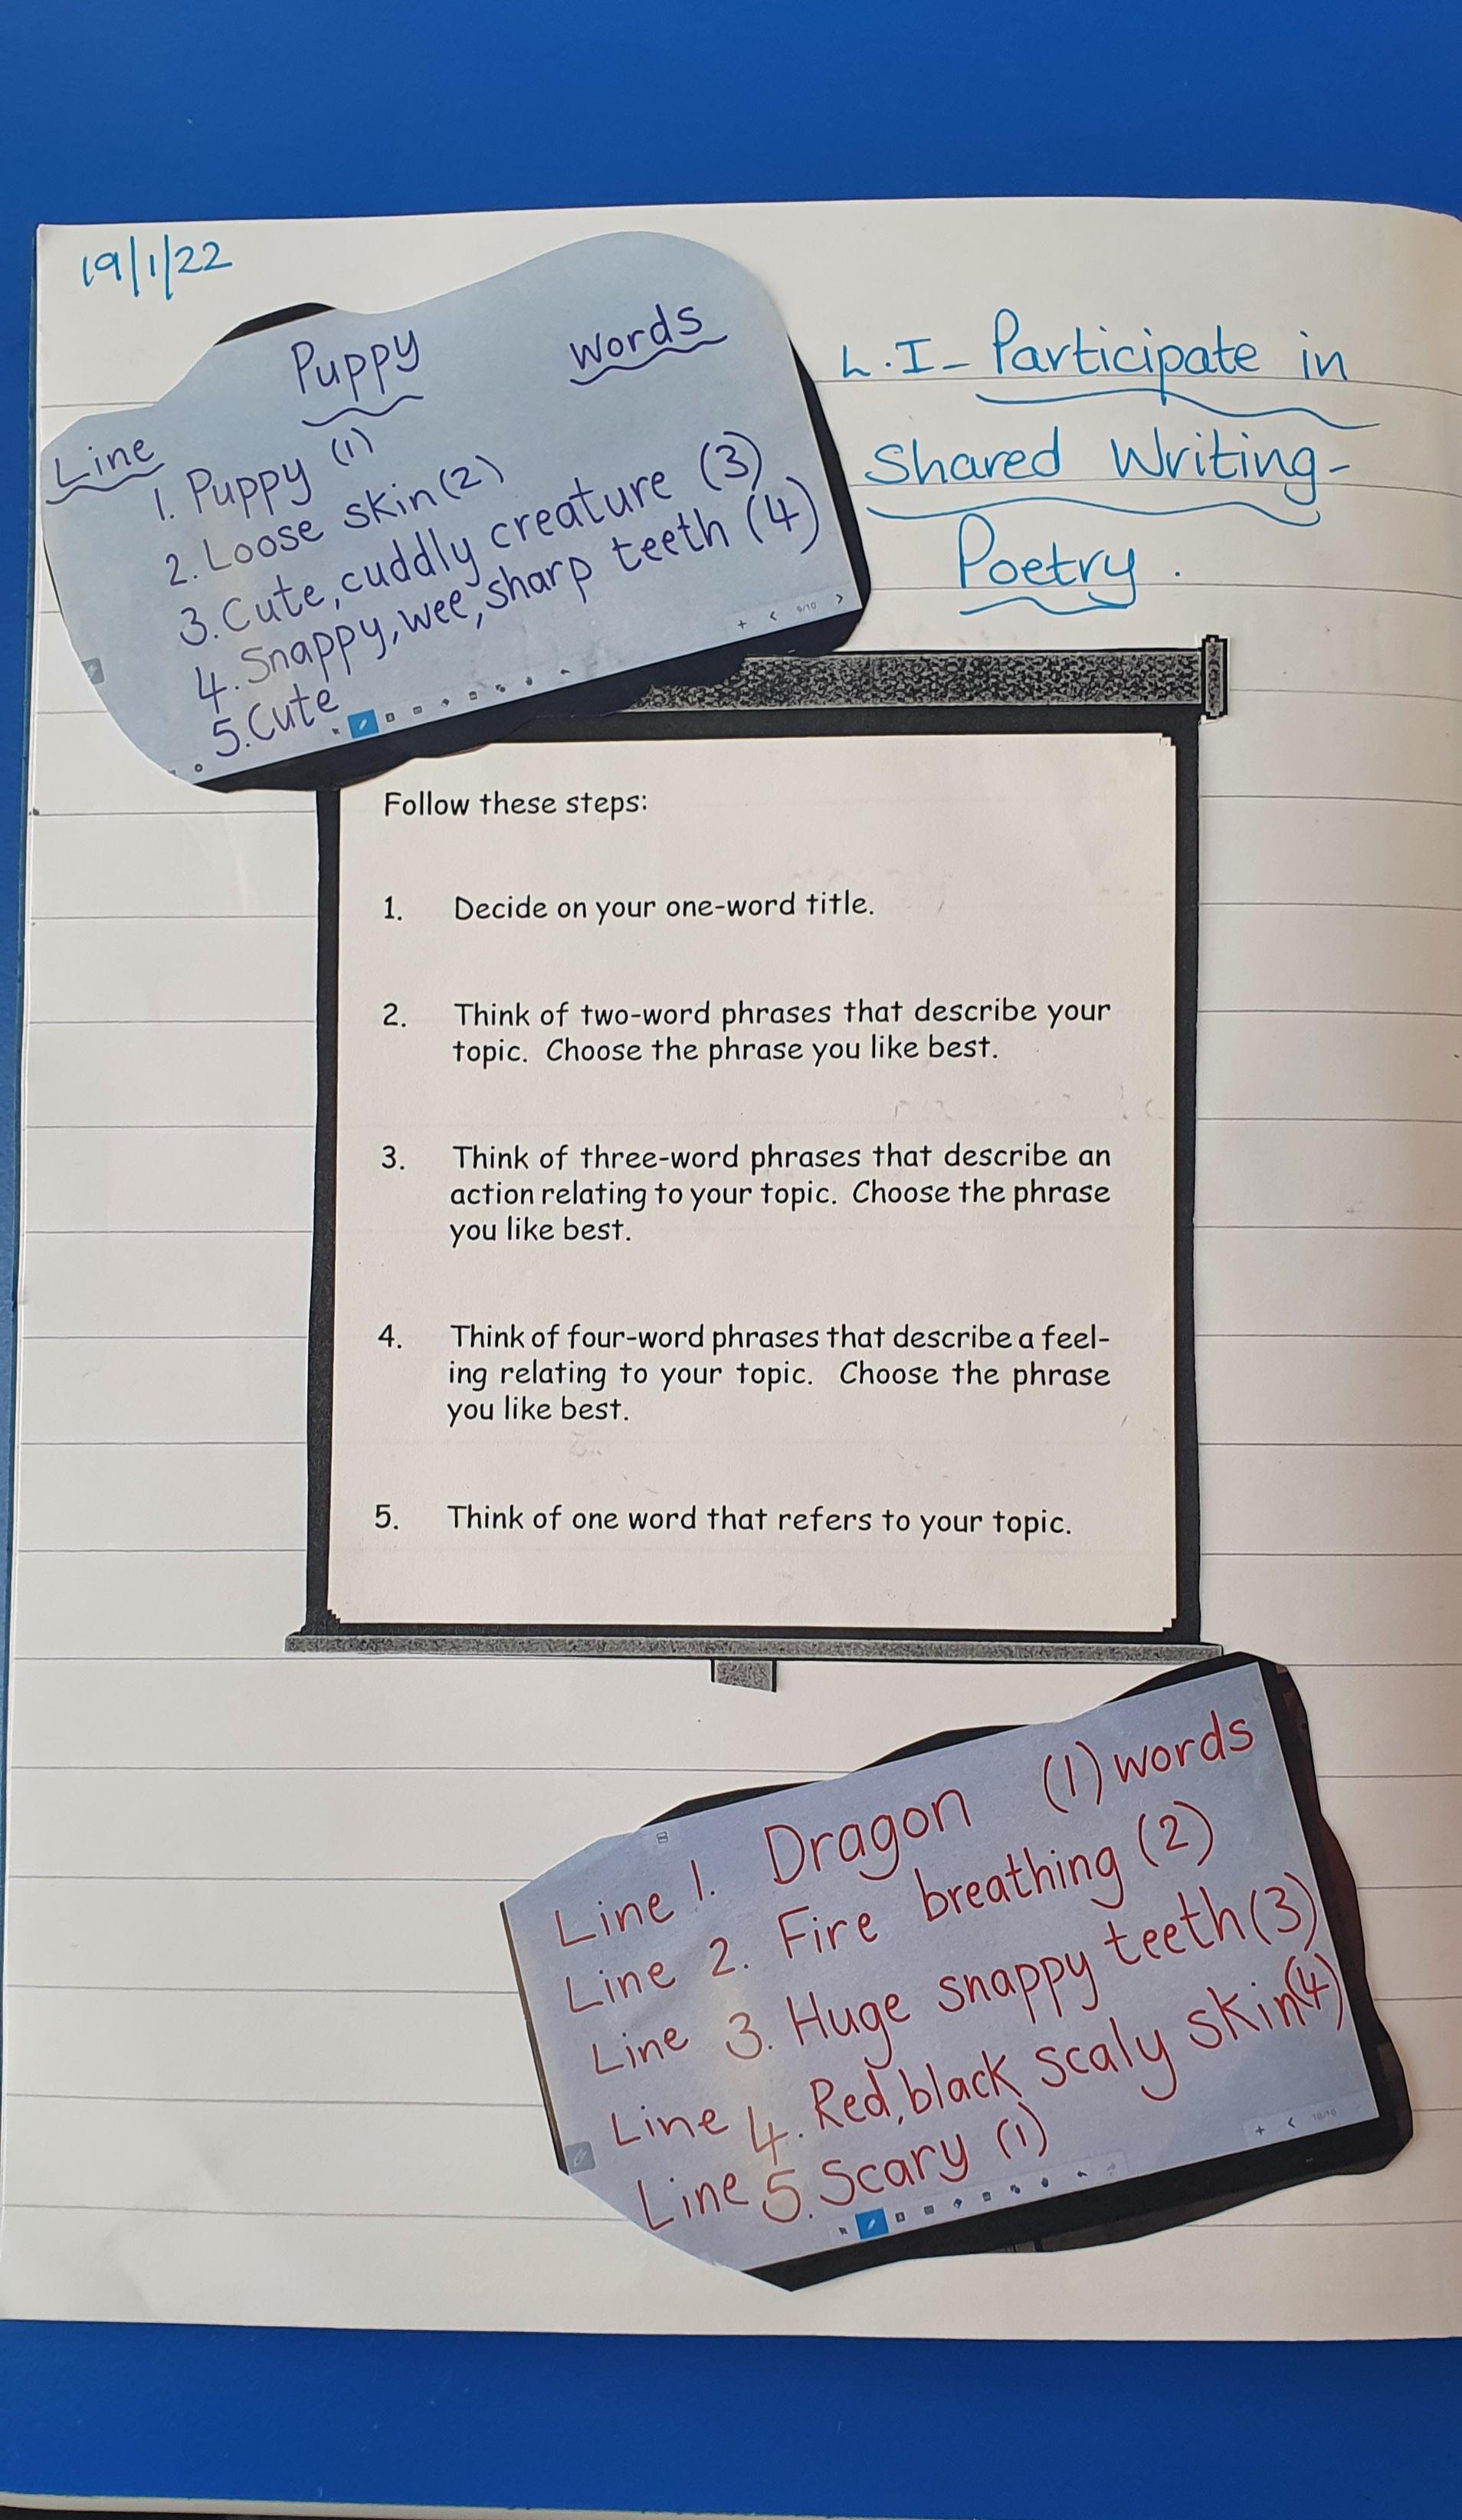 19/1/22
Puppy Words
Line
1. Puppy (1)
2. Loose skin (2)
3. Cute, cuddly creature (3)
4. Snappy, wee, sharp teeth (4)
5. Cute
9/10
L.I - Participate in
Shared Writing -
Poetry.
Follow these steps:
1. Decide on your one-word title.
2. Think of two-word phrases that describe your
topic. Choose the phrase you like best.
3. Think of three-word phrases that describe an
action relating to your topic. Choose the phrase
you like best.
4. Think of four-word phrases that describe a feel-
ing relating to your topic. Choose the phrase
you like best.
5. Think of one word that refers to your topic.
Line 1. Dragon (1) words
Line 2. Fire breathing (2)
Line 3. Huge snappy teeth (3)
Line 4. Red, black scaly skin (4)
Line 5. Scary (1)
10/10